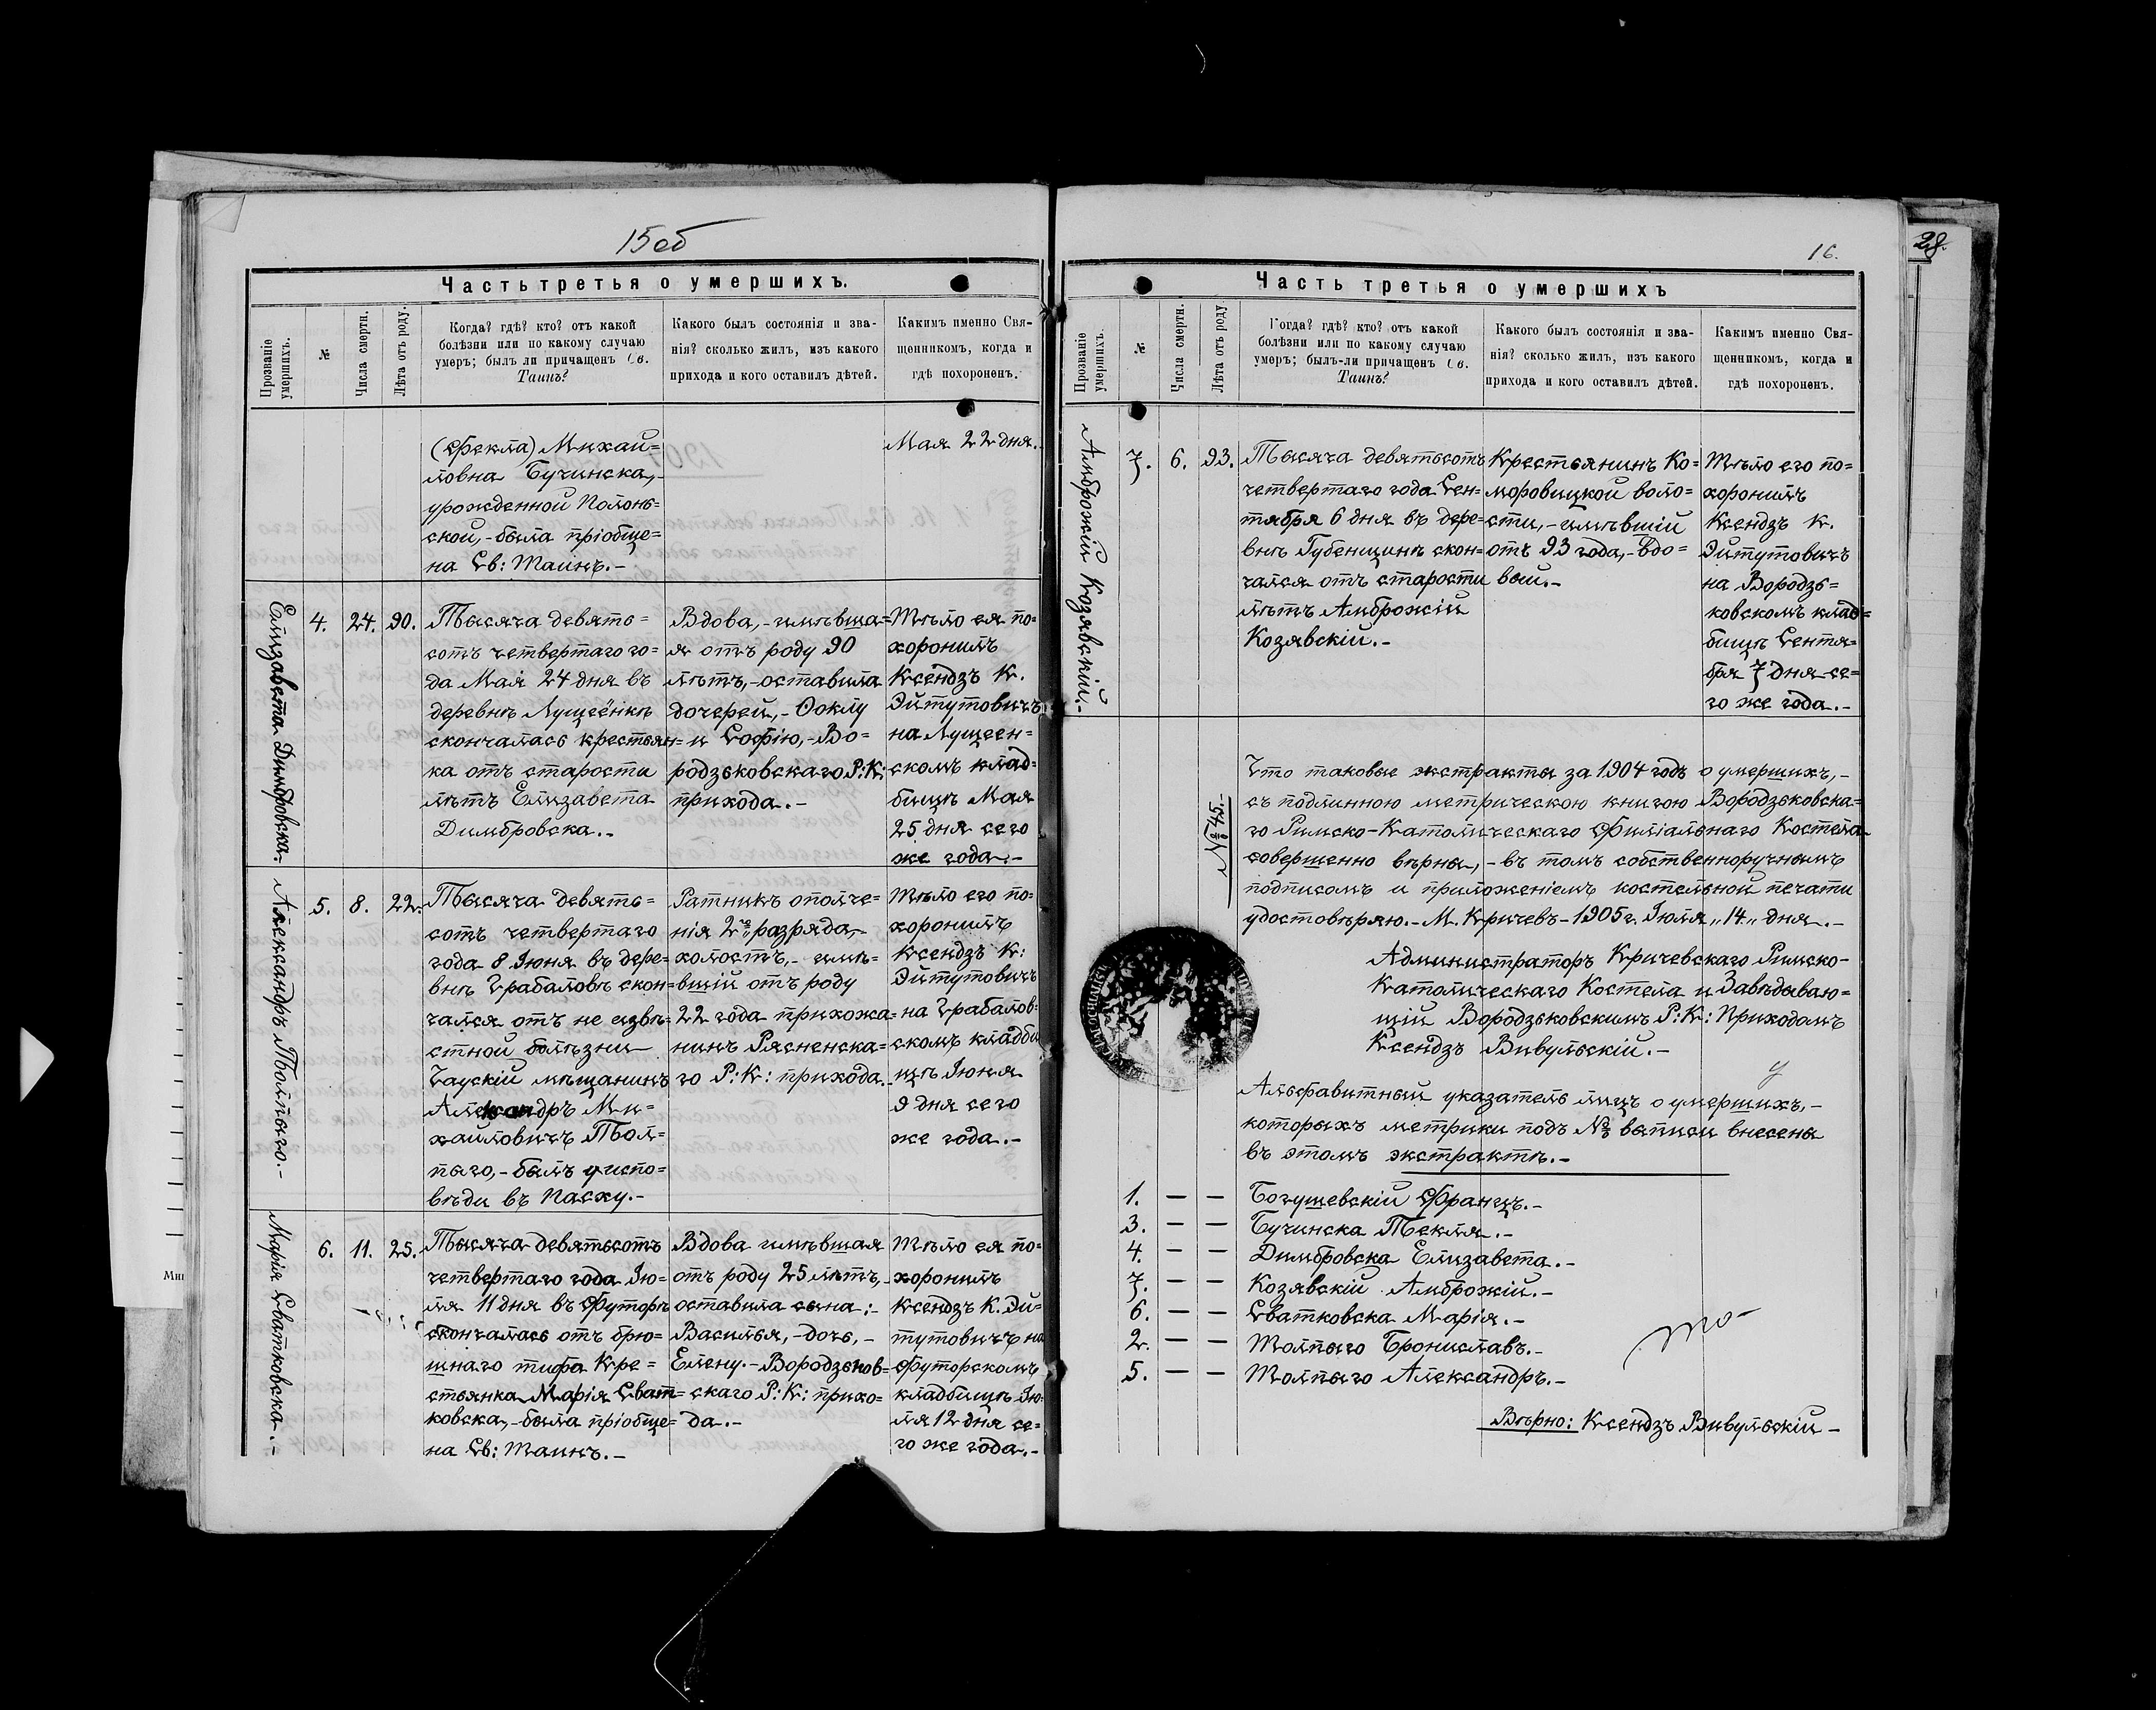 15об
Часть третья о умершихъ.
Прозваніе умершихъ.
№
Числа смерти.
Лѣта отъ роду.
Когда? гдѣ? кто? отъ какой
болѣзни или по какому случаю
умеръ; былъ ли причащенъ Св.
Таинъ?
Какого былъ состоянія и зва-
нія? сколько жилъ, изъ какого
прихода и кого оставилъ дѣтей.
Каким именно Свя-
щенникомъ, когда и
гдѣ похороненъ.
(Фекла) Михай=
ловна Бучинска,-
урожденной Полонь=
ской,- была пріобще=
на Св: Таинъ.-
Мая 22 дня.
Елизавета Димбровска.
4.
24.
90.
Тысяча девять=
сотъ четвертаго го=
да Мая 24 дня въ
деревнѣ Лущеёнкѣ
скончалась крестьян=
ка отъ старости
лѣтъ Елизавета
Димбровска.-
Вдова,- имѣвша=
я отъ роду 90
лѣтъ,- оставила
дочерей,- Ѳоклу
и Софію,- Во=
родзьковскаго Р:К:
прихода.-
Тѣло ея по=
хоронилъ
Ксендзъ К.
Эйтутовичъ
на Лущеен=
скомъ клад=
бищѣ Мая
25 дня сего
же года.-
Александръ Толпыго.-
5.
8.
22.
Тысяча девять=
сотъ четвертаго
года 8 Іюня въ дере=
внѣ Грабаловѣ скон=
чался отъ не извѣ=
стной болѣзни
Чаускій мѣщанинъ
Александръ Ми=
хайловичъ Тол=
пыго,- былъ у испо=
вѣди въ Пасху.-
Ратникъ ополче=
нія 2го разряда,-
холостъ,- имѣ=
вшій отъ роду
22 года прихожа=
нинъ Рясненска=
го Р:К: прихода.
Тѣло его по=
хоронилъ
Ксендзъ К:
Эйтутовичъ
на Грабалов=
скомъ кладби
щѣ Іюня
9 дня сего
же года.-
Марія Сватковска.-
6.
11.
25.
Тысяча девятьсотъ
четвертаго года Ію=
ля 11 дня въ Футорѣ
скончалась отъ брю=
шнаго тифа Кре=
стьянка Марія Сват=
ковска,- была пріобще=
на Св: Таинъ.-
Вдова имѣвшая
отъ роду 25 лѣтъ,-
оставила сына:-
Василья,- дочь,-
Елену.- Вородзьков=
скаго Р:К: прихо=
да.-
Тѣло ея по=
хоронилъ
Ксендзъ К. Эй=
тутовичъ на
Футорскомъ
кладбищѣ Ію=
ля 12 дня се=
го же года.-
16.
28.
Часть третья о умершихъ
Прозваніе умершихъ.
№
Числа смерти.
Лѣта отъ роду
Когда? гдѣ? кто? отъ какой
болѣзни или по какому случаю
умеръ; былъ-ли причащенъ Св.
Таинъ?
Какого былъ состоянія и зва-
нія? сколько жилъ, изъ какого
прихода и кого оставилъ дѣтей.
Какимъ именно Свя-
щенникомъ, когда и
гдѣ похороненъ.
Амброжій Козявскій.-
7.
6.
93.
Тысяча девятьсотъ
четвертаго года Сен=
тября 6 дня въ дере=
внѣ Губенщинѣ скон=
чался отъ старости
лѣтъ Амброжій
Козявскій.-
Крестьянинъ Ко=
моровицкой воло=
сти,- имѣвшій
отъ 93 года,- Вдо=
вый.-
Тѣло его по=
хоронилъ
Ксендзъ К.
Эйтутовичъ
на Вородзь=
ковскомъ клад=
бищѣ Сентя=
бря 7 дня се=
го же года.-
№ 45.-
Что таковые экстракты за 1904 годъ о умершихъ,-
съ подлинною метрическою книгою Вородзьковска=
го Римско-Католическаго Филіальнаго Костела
совершенно вѣрны,- въ томъ собственноручнымъ
подписомъ и приложеніемъ костельной печати
удостовѣряю.- М. Кричевъ- 1905 г. Іюля „14„ дня.-
Администраторъ Кричевскаго Римско-
Католическаго Костела и Завѣдываю=
щій Вородзьковскимъ Р:К: Приходомъ
Ксендзъ Вивульскій.-
Альфавитный указатель лицъ о умершихъ,-
которыхъ метрики подъ № выписи внесены
въ этомъ экстрактѣ.-
1. — — Богушевскій Францъ.-
3. — — Бучинска Текля.-
4. — — Димбровска Елизавета.-
7. — — Козявскій Амброжій.-
6. — — Сватковска Марія.-
2. — — Толпыго Брониславъ.-
5. — — Толпыго Александръ.-
Вѣрно: Ксендзъ Вивульскій-